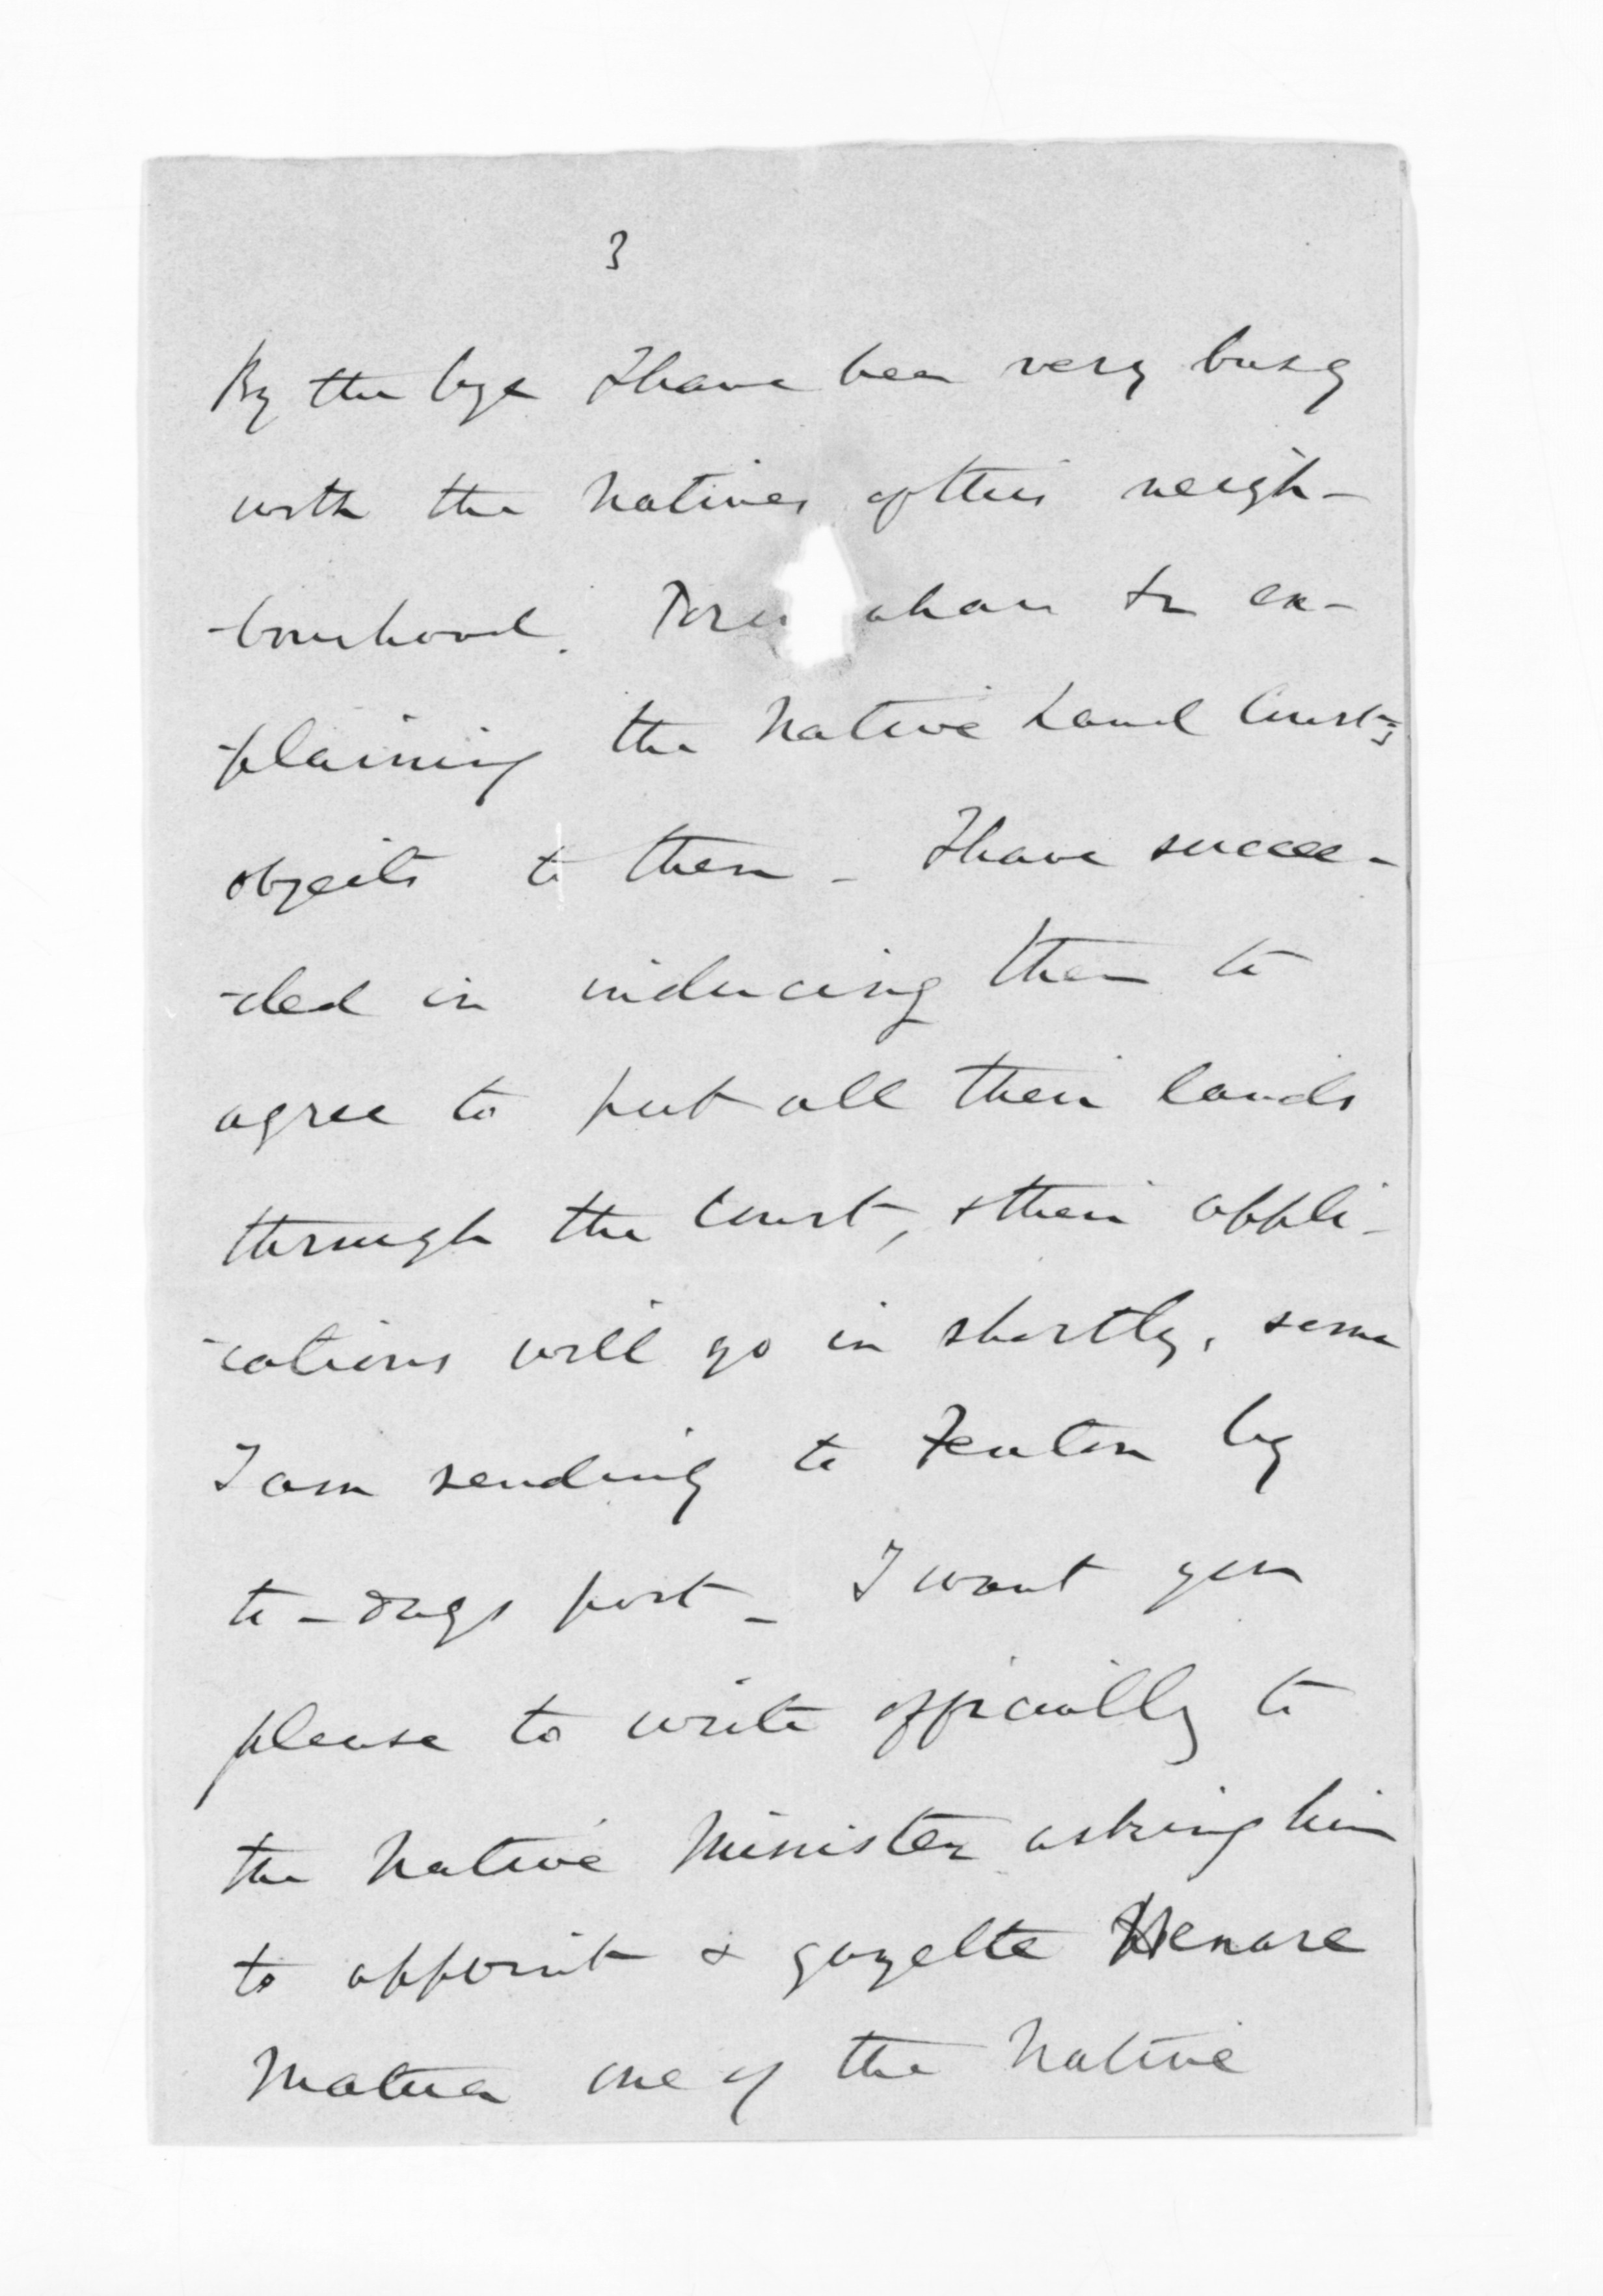 3
By the bye I have been very busy
with the Natives of this neigh-
-bourhood. & ex-
-plaining the Native Land Court's
objects to them - I have succee-
-ded in inducing them to
agree to put all their lands
through the Court, & their appli-
-cations will go in shortly, some
I am sending to Fenton by
to-days post - I want you
please to write officially to
the Native Minister asking him
to appoint & gazette Henare
Matua one of the Native